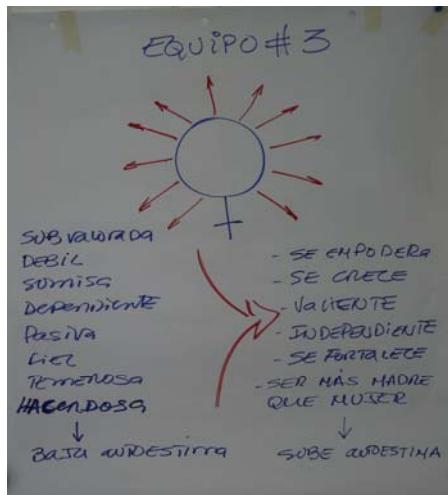 EQUIPO # 3
SUBVALORADA
DEBIL
SUMISA
DEPENDIENTE
PASIVA
FIEL
TEMEROSA
HACENDOSA
BAJA AUTOESTIMA
- SE EMPODERA
- SE CRECE
- VALIENTE
- INDEPENDIENTE
- SE FORTALECE
- SER MÁS MADRE
QUE MUJER
SUBE AUTOESTIMA